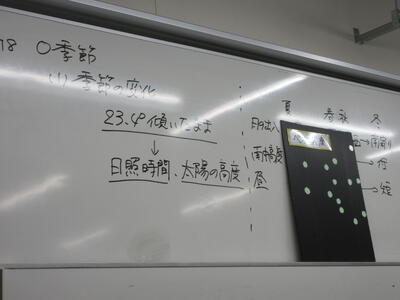 78 ○季節
(1) 季節の変化
23.4°傾いたまま
↓
日照時間、太陽の高度
夏 春秋 冬
日の出入
南中高度
昼
→南周り
→低
→短